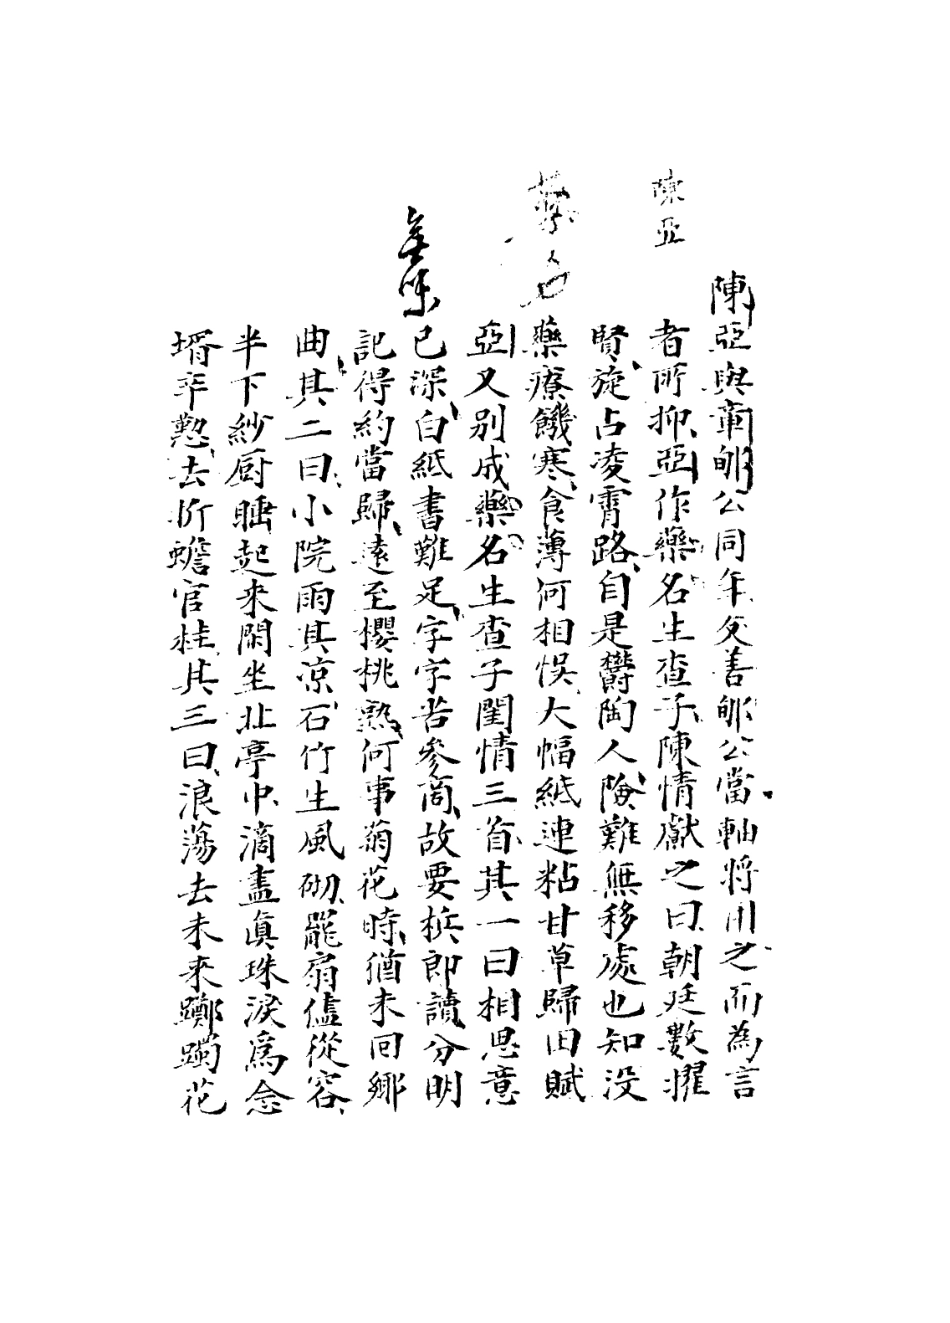 陳亞
藥名
陳亞與章郇公同年友善郇公當軸將用之而為言
者所抑亞作藥名生查子陳情獻之曰朝廷數擢
賢旋占凌霄路自是欝陶人險難無移處也知没
藥療饑寒食薄何相悞大幅紙連粘甘草歸田賦
亞又别成藥名生查子閨情三首其一曰相思意
已深白紙書難足字字苦參商故要梹郎讀分明
記得約當歸遠至櫻桃熟何事菊花時猶未回鄉
曲其二曰小院雨其凉石竹生風砌罷扇儘從容
半下紗厨睡起來閑坐北亭中滴盡真珠淚爲念
壻辛懃去折蟾宫桂其三曰浪蕩去未來躑躅花